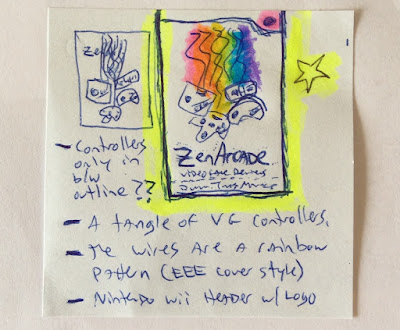 Zen
ZenArcade
VIDEO GAME REMIXES
- Controllers
only in
b/w
outline??
- A tangle of VG controllers.
- The wires are a rainbow
pattern (EEE cover style)
- Nintendo Wii Header w/ Logo